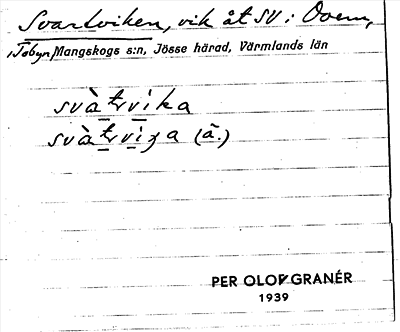 Svartviken, vik åt SV i Ovem,
i Tobyn, Mangskogs s:n, Jösse härad, Värmlands län
svàtvika
svàtviʒa (ä.)
PER OLOF GRANÉR
1939